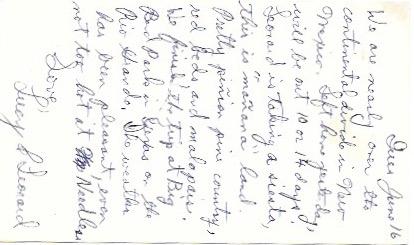 Tues, June 16
We are nearly over the
continental divide in New
Mexico. Left home yesterday,
will be out 10 or 12 days,
Leonard is taking a siesta,
this is mañana land.
Pretty piñion pine country,
red beds and malapais,
We finish the trip at Big
Bend Park in Texas on the
Rio Grande. The weather
has been pleasant, even
not too hot at Needles
Love,
Lucy & Leonard